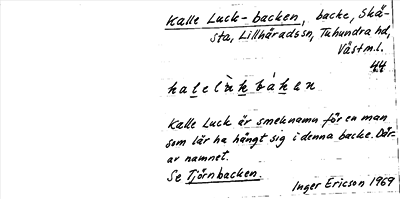 Kalle Luck-backen, backe, Skä-
sta, Lillhäradssn, Tuhundra hd,
Västm.l.
44
kalelùkbákan
Kalle Luck är smeknamn för en man
som lär ha hängt sig i denna backe. Där-
av namnet.
Se Tjörnbacken.
Inger Ericson 1969